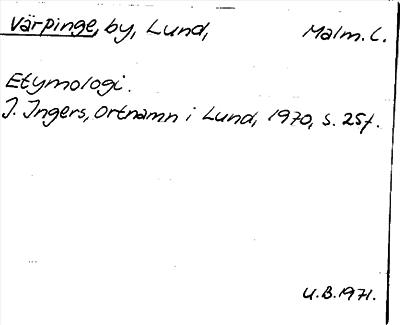 Värpinge, by, Lund, Malm. l.
Etymologi.
I. Ingers, Ortnamn i Lund, 1970, s. 25f.
U.B. 1971.